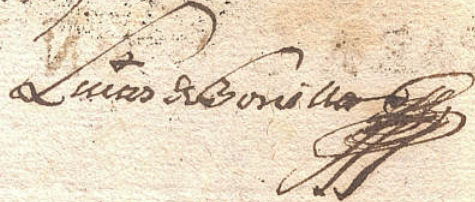 Lucas de Bonilla